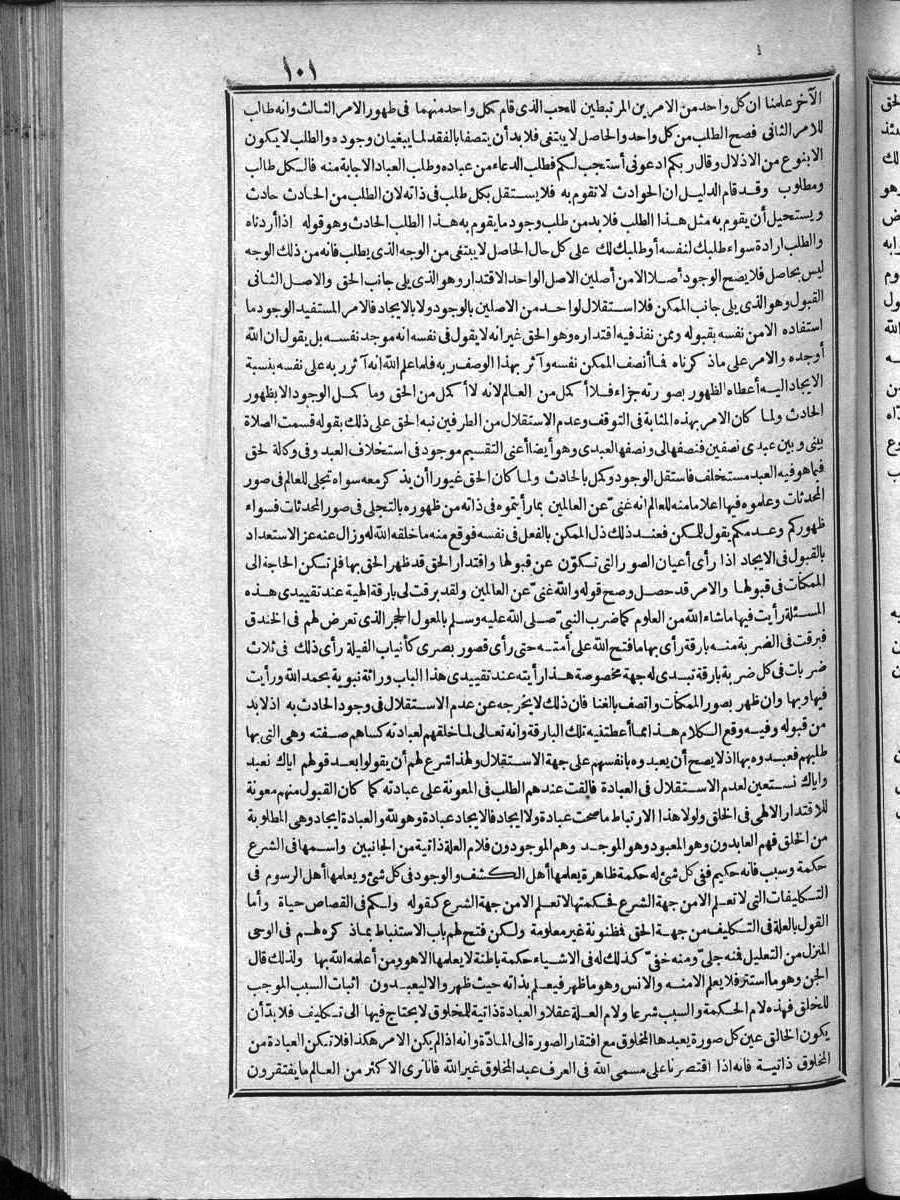 ١٠١
الآخر علمنا ان كل واحد من الامرين المرتبطين للمحب الذى قام كمل واحد منهما فى ظهور الامر الثالث وانه طالب
للامر الثانى فصح الطلب من كل واحد والحاصل لا يبتغى فلا بد أن يتصفا بالفقد لما يبغيان وجوده والطلب لا يكون
الا بنوع من الاذلال وقال ربكم ادعونى أستجب لكم فطلب الدعاء من عباده وطلب العباد الاجابة منه فالكل طالب
ومطلوب وقد قام الدليل ان الحوادث لا تقوم به فلا يستقل بكل طلب فى ذاته لان الطلب من الحادث حادث
ويستحيل أن يقوم به مثل هذا الطلب فلا بد من طلب وجود ما يقوم به هذا الطلب الحادث وهو قوله اذا أردناه
والطلب ارادة سواء طلبك لنفسه أو طلبك لك على كل حال الحاصل لا يبتغى من الوجه الذى يطلب فانه من ذلك الوجه
ليس بحاصل فلا يصح الوجود أصلا الا من أصلين الاصل الواحد الاقتدار وهو الذى يلى جانب الحق والاصل الثانى
القبول وهو الذى يلى جانب الممكن فلا استقلال لواحد من الاصلين بالوجود ولا بالايجاد فالامر المستفيد الوجود ما
استفاده الا من نفسه بقبوله وممن نفذ فيه اقتداره وهو الحق غير انه لا يقول فى نفسه انه موجد نفسه بل يقول ان الله
أوجده والامر على ما ذكرناه فما أنصف الممكن نفسه وآثر بهذا الوصف ربه فلما علم الله انه آثر ربه على نفسه بنسبة
الايجاد اليه أعطاه الظهور بصورته جزاء فلا أكمل من العالم لانه لا أكمل من الحق وما كمل الوجود الا بظهور
الحادث ولما كان الامر بهذه المثابة فى التوقف وعدم الاستقلال من الطرفين نبه الحق على ذلك بقوله قسمت الصلاة
بينى وبين عبدى نصفين فنصفها لى ونصفها لعبدى وهو أيضا أعنى التقسيم موجود فى استخلاف العبد وفى وكالة الحق
فيما هو فيه العبد مستخلف فاستقل الوجود وكمل بالحادث ولما كان الحق غيورا أن يذكر معه سواه تجلى للعالم فى صور
المحدثات وعلموه فيها اعلاما منه للعالم انه غنىّ عن العالمين بما رأيتموه فى ذاته من ظهوره بالتجلى فى صور المحدثات فسواء
ظهوركم وعدمكم يقول للممكن فعند ذلك ذل الممكن بالفعل فى نفسه فوقع منه ما خلقه الله له وزال عنه عز الاستعداد
بالقبول فى الايجاد اذا رأى أعيان الصور التى تتكوّن عن قبولها واقتدار الحق قد ظهر الحق بها فلم تكن الحاجة الى
الممكنات فى قبولها والامر قد حصل وصح قوله والله غنىّ عن العالمين ولقد برقت لى بارقة الهية عند تقييدى هذه
المسئلة رأيت فيها ما شاء الله من العلوم كما ضرب النبىّ صلى الله عليه وسلم بالمعول الحجر الذى تعرض لهم فى الخندق
فبرقت فى الضربة منه بارقة رأى بها ما فتح الله على أمته حتى رأى قصور بصرى كأنياب الفيلة رأى ذلك فى ثلاث
ضربات فى كل ضربة بارقة تبدى له جهة مخصوصة هذا رأيته عند تقييدى هذا الباب وراثة نبوية بحمد الله ورأيت
فيها وبها وان ظهر بصور الممكنات واتصف بالغنا فان ذلك لا يخرجه عن عدم الاستقلال فى وجود الحادث به اذ لا بد
من قبوله وفيه وقع الكلام هذا مما أعطتنيه تلك البارقة وانه تعالى لما خلقهم لعبادته كساهم صفته وهى التى بها
طلبهم فعبدوه بها اذ لا يصح أن يعبدوه بانفسهم على جهة الاستقلال ولهذا شرع لهم أن يقولوا بعد قولهم اياك نعبد
واياك نستعين لعدم الاستقلال فى العبادة فالفت عندهم الطلب فى المعونة على عبادته كما كان القبول منهم معونة
للاقتدار الالهى فى الخلق ولولا هذا الارتباط ما صحت عبادة ولا ايجاد فالايجاد عبادة وهو لله والعبادة ايجاد وهى المطلوبة
من الخلق فهم العابدون وهو المعبود وهو الموجد وهم الموجودون فلام العلة ذاتية من الجانبين واسمها فى الشرع
حكمة وسبب فانه حكيم ففى كل شئ له حكمة ظاهرة يعلمها أهل الكشف والوجود فى كل شئ ويعلمها أهل الرسوم فى
التكليفات التى لا تعلم الا من جهة الشرع فحكمتها لا تعلم الا من جهة الشرع كقوله ولكم فى القصاص حياة وأما
القول بالعلة فى التكليف من جهة الحق فمظنونة غير معلومة ولكن فتح لهم باب الاستنباط بما ذكره لهم فى الوحى
المنزل من التعليل فمنه جلىّ ومنه خفىّ كذلك له فى الاشياء حكمة باطنة لا يعلمها الا هو ومن أعلمه الله بها ولذلك قال
الجن وهو ما استتر فلا يعلم الا منه والانس وهو ما ظهر فيعلم بذاته حيث ظهر والا ليعبدون اثبات السبب الموجب
للخلق فهذه لام الحكمة والسبب شرعا ولام العلة عقلا والعبادة ذاتية للمخلوق لا يحتاج فيها الى تكليف فلا بدّ أن
يكون الخالق عين كل صورة يعبدها المخلوق مع افتقار الصورة الى المادّة وانه اذا لم يكن الامر هكذا فلا تكن العبادة من
المخلوق ذاتية فانه اذا اقتصرنا على مسمى الله فى العرف عبد المخلوق غير الله فانا نرى الاكثر من العالم ما يفتقرون